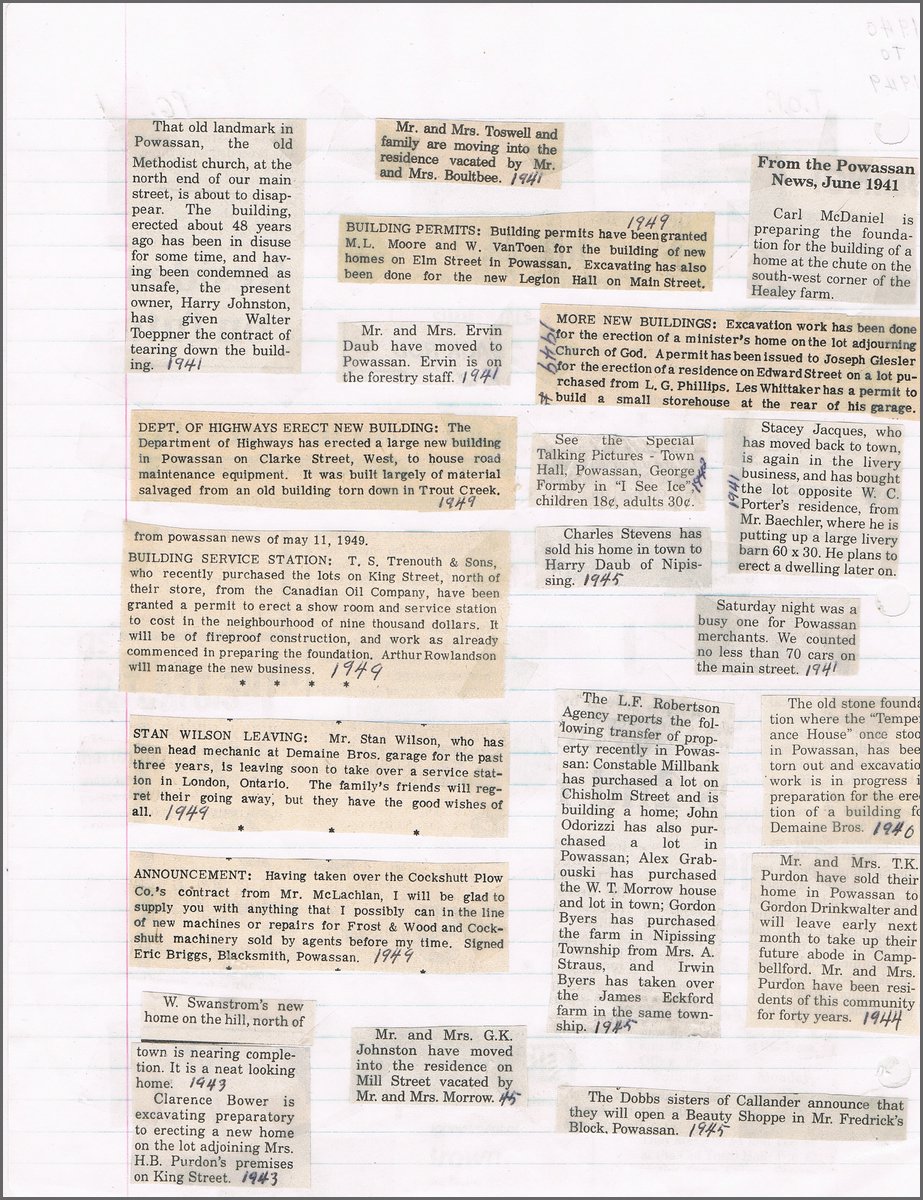 That old landmark in
Powassan, the old
Methodist church, at the
north end of our main
street, is about to disap-
pear. The building,
erected about 48 years
ago has been in disuse
for some time, and hav-
ing been condemned as
unsafe, the present
owner, Harry Johnston,
has given Walter
Toeppner the contract of
tearing down the build-
ing. 1941
Mr. and Mrs. Toswell and
family are moving into the
residence vacated by Mr.
and Mrs. Boultbee. 1941
From the Powassan
News, June 1941
Carl McDaniel is
preparing the founda-
tion for the building of a
home at the chute on the
south-west corner of the
Healey farm.
1949
BUILDING PERMITS: Building permits have been granted
M.L. Moore and W. VanToen for the building of new
homes on Elm Street in Powassan. Excavating has also
been done for the new Legion Hall on Main Street.
Mr. and Mrs. Ervin
Daub have moved to
Powassan. Ervin is on
the forestry staff. 1941
MORE NEW BUILDINGS: Excavation work has been done
for the erection of a minister's home on the lot adjourning
Church of God. A permit has been issued to Joseph Giesler
for the erection of a residence on Edward Street on a lot pu-
rchased from L. G. Phillips. Les Whittaker has a permit to
build a small storehouse at the rear of his garage.
1949
DEPT. OF HIGHWAYS ERECT NEW BUILDING: The
Department of Highways has erected a large new building
in Powassan on Clarke Street, West, to house road
maintenance equipment. It was built largely of material
salvaged from an old building torn down in Trout Creek.
1949
See the Special
Talking Pictures - Town
Hall, Powassan, George
Formby in "I See Ice"
children 18¢, adults 30¢.
Stacey Jacques, who
has moved back to town,
is again in the livery
business, and has bought
the lot opposite W. C.
Porter's residence, from
Mr. Baechler, where he is
putting up a large livery
barn 60 x 30. He plans to
erect a dwelling later on.
1941
from powassan news of may 11, 1949.
BUILDING SERVICE STATION: T. S. Trenouth & Sons,
who recently purchased the lots on King Street, north of
their store, from the Canadian Oil Company, have been
granted a permit to erect a show room and service station
to cost in the neighbourhood of nine thousand dollars. It
will be of fireproof construction, and work as already
commenced in preparing the foundation. Arthur Rowlandson
will manage the new business. 1949
* * * *
Charles Stevens has
sold his home in town to
Harry Daub of Nipis-
sing. 1945
Saturday night was a
busy one for Powassan
merchants. We counted
no less than 70 cars on
the main street. 1941
STAN WILSON LEAVING: Mr. Stan Wilson, who has
been head mechanic at Demaine Bros. garage for the past
three years, is leaving soon to take over a service stat-
ion in London, Ontario. The family's friends will reg-
ret their going away, but they have the good wishes of
all. 1949
* * *
The L.F. Robertson
Agency reports the fol-
lowing transfer of prop-
erty recently in Powas-
san: Constable Millbank
has purchased a lot on
Chisholm Street and is
building a home; John
Odorizzi has also pur-
chased a lot in
Powassan; Alex Grab-
ouski has purchased
the W. T. Morrow house
and lot in town; Gordon
Byers has purchased
the farm in Nipissing
Township from Mrs. A.
Straus, and Irwin
Byers has taken over
the James Eckford
farm in the same town-
ship. 1945
The old stone founda
tion where the "Temper
ance House" once stoo
in Powassan, has bee
torn out and excavatio
work is in progress i
preparation for the ere
tion of a building fo
Demaine Bros. 1940
ANNOUNCEMENT: Having taken over the Cockshutt Plow
Co.'s contract from Mr. McLachlan, I will be glad to
supply you with anything that I possibly can in the line
of new machines or repairs for Frost & Wood and Cock-
shutt machinery sold by agents before my time. Signed
Eric Briggs, Blacksmith, Powassan. 1949
Mr. and Mrs. T.K.
Purdon have sold their
home in Powassan to
Gordon Drinkwalter and
will leave early next
month to take up their
future abode in Camp-
bellford. Mr. and Mrs.
Purdon have been resi-
dents of this community
for forty years. 1944
W. Swanstrom's new
home on the hill, north of
town is nearing comple-
tion. It is a neat looking
home. 1943
Clarence Bower is
excavating preparatory
to erecting a new home
on the lot adjoining Mrs.
H.B. Purdon's premises
on King Street. 1943
Mr. and Mrs. G.K.
Johnston have moved
into the residence on
Mill Street vacated by
Mr. and Mrs. Morrow. 45
The Dobbs sisters of Callander announce that
they will open a Beauty Shoppe in Mr. Fredrick's
Block, Powassan. 1945